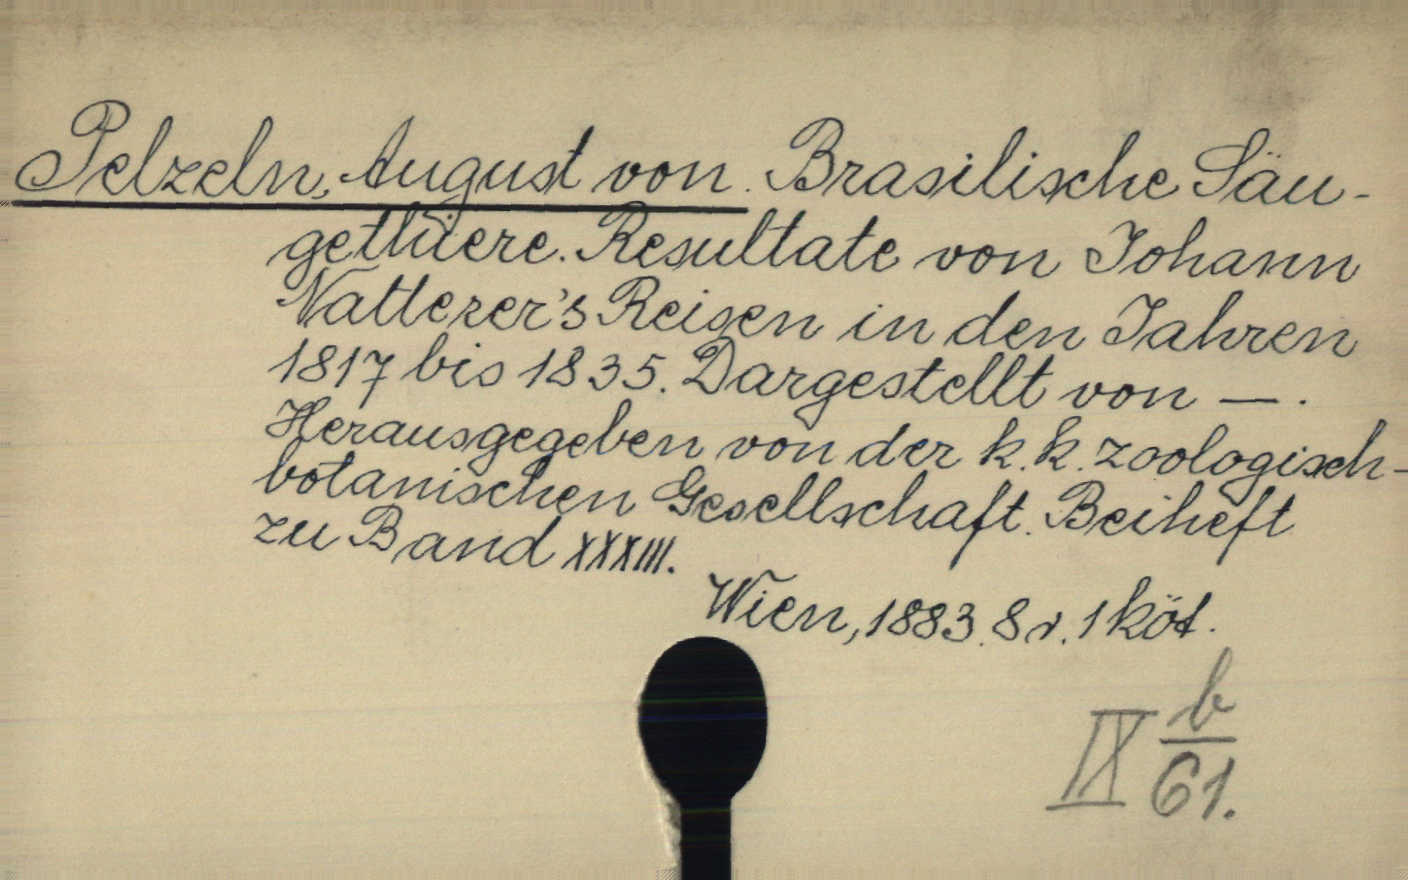 Pelzeln, August von. Brasilische Säu-
gethiere. Resultate von Johann
Natterer's Reisen in den Jahren
1817 bis 1835. Dargestellt von —.
Herausgegeben von der k. k. zoologisch-
botanischen Gesellschaft. Beiheft
zu Band XXXIII.
Wien, 1883. 8r. 1 köt.
IX b/61.